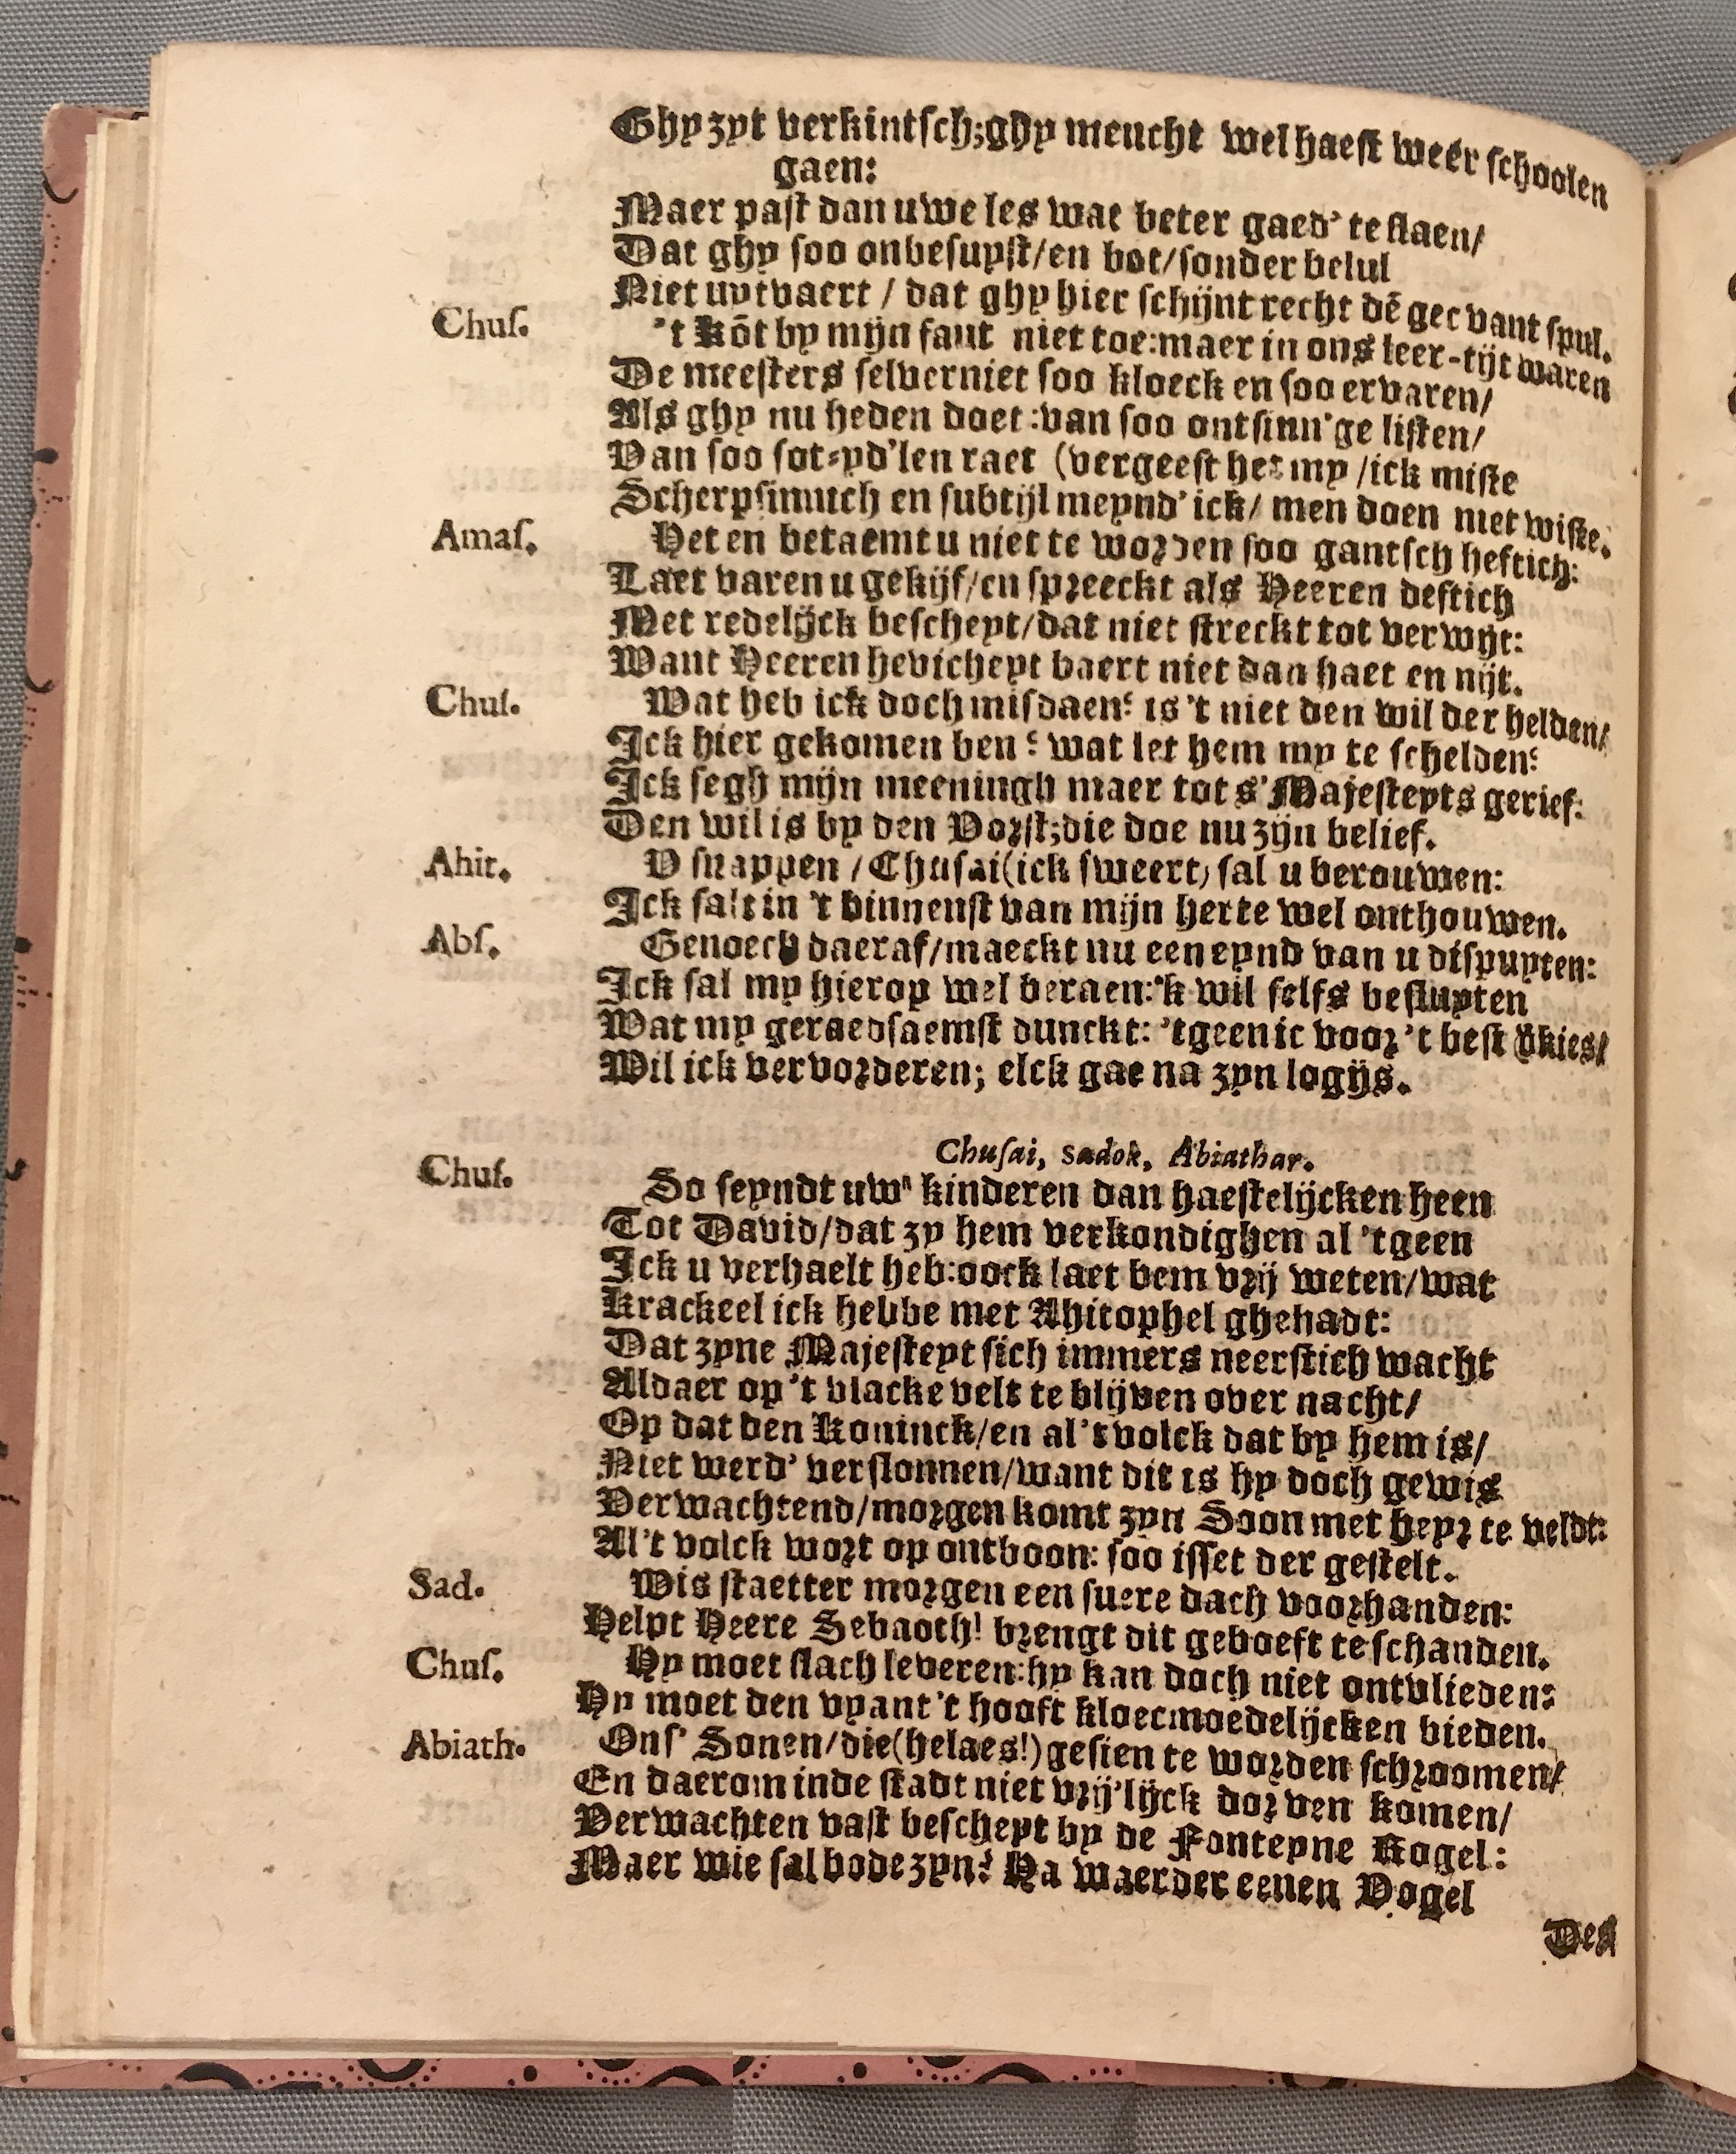 Ghy zyt verkintsch; ghy meucht wel haest weêr schoolen
gaen:
Maer past dan uwe les wat beter gaed' te slaen/
Dat ghy soo onbesuyst/en bot/sonder belul
Niet uytvaert / dat ghy hier schijnt recht dē gec vant spul.
Chus. 't Kōt by mijn faut niet toe: maer in ons leer-tijt waren
De meesters selver niet soo kloeck en soo ervaren/
Als ghy nu heden doet: van soo ontsinn'ge listen/
Van soo sot-yd'len raet (vergeeft het my /ick miste
Scherpsinnich en subtijl meynd' ick/ men doen niet wiste.
Amas. Het en betaemt u niet te worden soo gantsch heftich:
Laet varen u gekijf/en spreeckt als Heeren deftich
Met redelijck bescheyt/dat niet streckt tot verwijt:
Want Heeren hevicheyt baert niet dan haet en nijt.
Chus. Wat heb ick doch misdaen? is 't niet den wil der helden/
Ick hier gekomen ben? wat let hem my te schelden?
Ick segh mijn meeningh maer tot s' Majesteyts gerief:
Den wil is by den Vorst; die doe nu zijn belief.
Ahit. V snappen / Chusai (ick sweert) sal u berouwen:
Ick salt in 't binnenst van mijn herte wel onthouwen.
Abs. Genoech daeraf/maeckt nu een eynd van u dispuyten:
Ick sal my hierop wel beraen: 'k wil selfs besluyten
Wat my geraedsaemst dunckt: 'tgeen ic voor 't best v̄kies/
Wil ick vervorderen; elck gae na zyn logijs.
Chusai, Sadok, Abiathar.
Chus. So seyndt uwⁿ kinderen dan haestelijcken heen
Tot David/dat zy hem verkondighen al 'tgeen
Ick u verhaelt heb: oock laet hem vrij weten/wat
Krackeel ick hebbe met Ahitophel ghehadt:
Dat zyne Majesteyt sich immers neerstich wacht
Aldaer op 't vlacke velt te blijven over nacht/
Op dat den Koninck/en al 't volck dat by hem is/
Niet werd' verslonnen/want dit is hy doch gewis
Verwachtend/morgen komt zyn Soon met heyr te veldt:
Al't volck wort op ontboon: soo isset der gestelt.
Sad. Wis staetter morgen een suere dach voorhanden:
Helpt Heere Sebaoth! brengt dit geboeft te schanden.
Chus. Hy moet slach leveren: hy kan doch niet ontvlieden:
Hy moet den vyant 't hooft kloecmoedelijcken bieden.
Abiath. Ons' Sonen/die (helaes!) gesien te worden schroomen/
En daerom inde stadt niet vrij'lijck dorven komen/
Verwachten vast bescheyt by de Fonteyne Rogel:
Maer wie sal bode zyn? Ha waer der eenen Vogel
Den